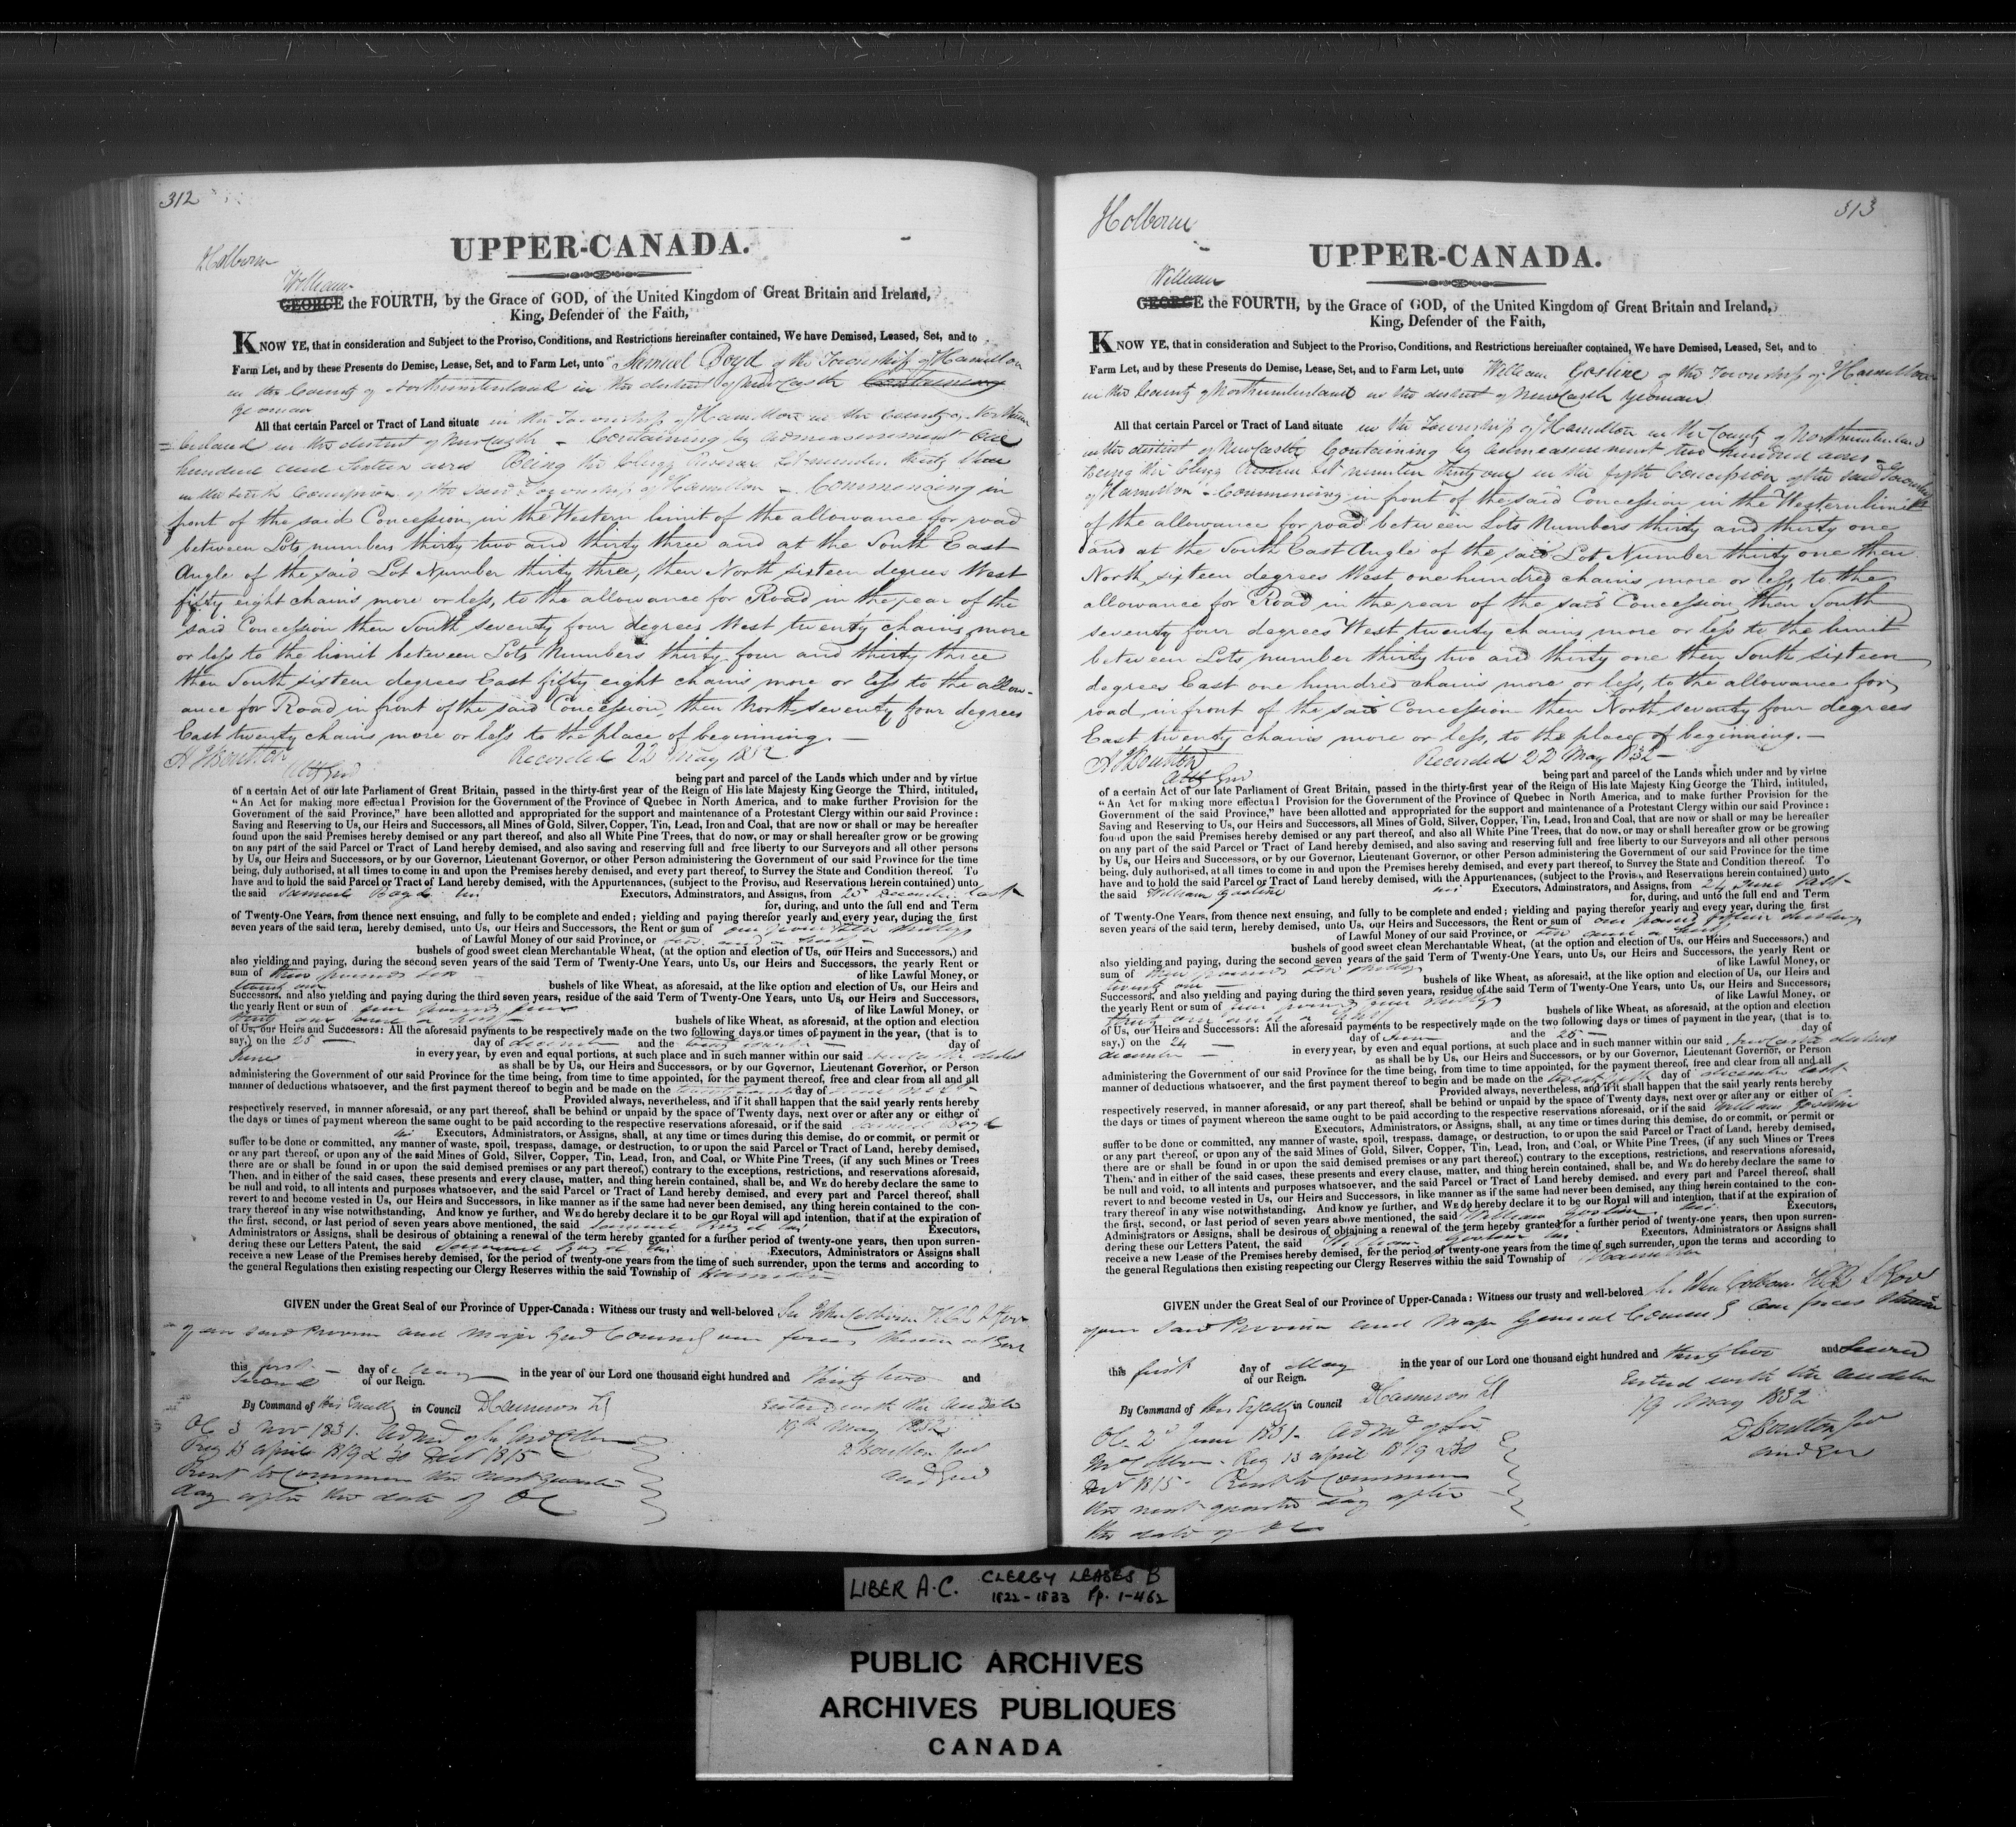 312
UPPER-CANADA.
William
GEORGE the FOURTH, by the Grace of GOD, of the United Kingdom of Great Britain and Ireland,
King, Defender of the Faith,
KNOW YE, that in consideration and Subject to the Proviso, Conditions, and Restrictions hereinafter contained, We have Demised, Leased, Set, and to
Farm Let, and by these Presents do Demise, Lease, Set, and to Farm Let, unto Samuel Boyd of the Township of Hamilton
in the County of Northumberland in the district of Newcastle Containing
Yeoman
All that certain Parcel or Tract of Land situate in the Township of Hamilton in the County of Northum
=berland in the district of Newcastle - Containing by admeasurement One
hundred and Sixteen acres Being the Clergy Reserve Lot number thirty three
in the Concession of the said Township of Hamilton - Commencing in
front of the said Concession in the Western limit of the allowance for road
between Lots numbers thirty two and thirty three and at the South East
Angle of the said Lot Number thirty three, then North sixteen degrees West
fifty eight chains more or less, to the allowance for Road in the rear of the
said Concession then South seventy four degrees West twenty chains more
or less to the limit between Lots Numbers thirty four and thirty three
then South sixteen degrees East fifty eight chains more or less to the allow-
ance for Road in front of the said Concession, then North seventy four degrees
East twenty chains more or less to the place of beginning. —
H J Boulton Recorded 22 May 1832
Atty Gen
being part and parcel of the Lands which under and by virtue
of a certain Act of our late Parliament of Great Britain, passed in the thirty-first year of the Reign of His late Majesty King George the Third, intituled,
"An Act for making more effectual Provision for the Government of the Province of Quebec in North America, and to make further Provision for the
Government of the said Province," have been allotted and appropriated for the support and maintenance of a Protestant Clergy within our said Province:
Saving and Reserving to Us, our Heirs and Successors, all Mines of Gold, Silver, Copper, Tin, Lead, Iron and Coal, that are now or shall or may be hereafter
found upon the said Premises hereby demised or any part thereof, and also all White Pine Trees, that do now, or may or shall hereafter grow or be growing
on any part of the said Parcel or Tract of Land hereby demised, and also saving and reserving full and free liberty to our Surveyors and all other persons
by Us, our Heirs and Successors, or by our Governor, Lieutenant Governor, or other Person administering the Government of our said Province for the time
being, duly authorised, at all times to come in and upon the Premises hereby demised, and every part thereof, to Survey the State and Condition thereof. To
have and to hold the said Parcel or Tract of Land hereby demised, with the Appurtenances, (subject to the Proviso, and Reservations herein contained) unto
the said Samuel Boyd his Executors, Adminstrators, and Assigns, from 25 December last
for, during, and unto the full end and Term
of Twenty-One Years, from thence next ensuing, and fully to be complete and ended; yielding and paying therefor yearly and every year, during the first
seven years of the said term, hereby demised, unto Us, our Heirs and Successors, the Rent or sum of one
of Lawful Money of our said Province, or and a half —
bushels of good sweet clean Merchantable Wheat, (at the option and election of Us, our Heirs and Successors,) and
also yielding and paying, during the second seven years of the said Term of Twenty-One Years, unto Us, our Heirs and Successors, the yearly Rent or
sum of three pounds ten — of like Lawful Money, or
twenty one bushels of like Wheat, as aforesaid, at the like option and election of Us, our Heirs and
Successors, and also yielding and paying during the third seven years, residue of the said Term of Twenty-One Years, unto Us, our Heirs and Successors,
the yearly Rent or sum of five pounds five of like Lawful Money, or
thirty one and a half bushels of like Wheat, as aforesaid, at the option and election
of Us, our Heirs and Successors: All the aforesaid payments to be respectively made on the two following days or times of payment in the year, (that is to
say,) on the 25 — day of december and the twenty fourth — day of
June in every year, by even and equal portions, at such place and in such manner within our said Newcastle district
as shall be by Us, our Heirs and Successors, or by our Governor, Lieutenant Governor, or Person
administering the Government of our said Province for the time being, from time to time appointed, for the payment thereof, free and clear from all and all
manner of deductions whatsoever, and the first payment thereof to begin and be made on the twenty fourth day of June next
Provided always, nevertheless, and if it shall happen that the said yearly rents hereby
respectively reserved, in manner aforesaid, or any part thereof, shall be behind or unpaid by the space of Twenty days, next over or after any or either of
the days or times of payment whereon the same ought to be paid according to the respective reservations aforesaid, or if the said Samuel Boyd
his Executors, Administrators, or Assigns, shall, at any time or times during this demise, do or commit, or permit or
suffer to be done or committed, any manner of waste, spoil, trespass, damage, or destruction, to or upon the said Parcel or Tract of Land, hereby demised,
or any part thereof, or upon any of the said Mines of Gold, Silver, Copper, Tin, Lead, Iron, and Coal, or White Pine Trees, (if any such Mines or Trees
there are or shall be found in or upon the said demised premises or any part thereof,) contrary to the exceptions, restrictions, and reservations aforesaid,
Then, and in either of the said cases, these presents and every clause, matter, and thing herein contained, shall be, and WE do hereby declare the same to
be null and void, to all intents and purposes whatsoever, and the said Parcel or Tract of Land hereby demised, and every part and Parcel thereof, shall
revert to and become vested in Us, our Heirs and Successors, in like manner as if the same had never been demised, any thing herein contained to the con-
trary thereof in any wise notwithstanding. And know ye further, and WE do hereby declare it to be our Royal will and intention, that if at the expiration of
the first, second, or last period of seven years above mentioned, the said Samuel Boyd his Executors,
Administrators or Assigns, shall be desirous of obtaining a renewal of the term hereby granted for a further period of twenty-one years, then upon surren-
dering these our Letters Patent, the said Samuel Boyd his Executors, Administrators or Assigns shall
receive a new Lease of the Premises hereby demised, for the period of twenty-one years from the time of such surrender, upon the terms and according to
the general Regulations then existing respecting our Clergy Reserves within the said Township of Hamilton
GIVEN under the Great Seal of our Province of Upper-Canada: Witness our trusty and well-beloved Sir John Colborne KCB L Gov
of our said Province and Major Genl Comms our forces therein at York
this first — day of May in the year of our Lord one thousand eight hundred and thirty two and
Second of our Reign.
By Command of His Excelly in Council D Cameron Entered with the Auditor
19th May 1832
OC 3 Nov 1831.
Reg 13 April 1819 & 30 Dect 1815 D Boulton Junr
Rent to Commence the next quarter Aud Genl
day after the date of OC
Holborne
313
UPPER-CANADA.
William
GEORGE the FOURTH, by the Grace of GOD, of the United Kingdom of Great Britain and Ireland,
King, Defender of the Faith,
KNOW YE, that in consideration and Subject to the Proviso, Conditions, and Restrictions hereinafter contained, We have Demised, Leased, Set, and to
Farm Let, and by these Presents do Demise, Lease, Set, and to Farm Let, unto William Gosline of the Township of Hamilton
in the County of Northumberland in the district of Newcastle Yeoman
All that certain Parcel or Tract of Land situate in the Township of Hamilton in the County of Northumberland
in the district of Newcastle Containing by admeasurement two hundred acres -
Being the Clergy Reserve Lot number thirty one in the fifth Concession of the said Township
of Hamilton - Commencing in front of the said Concession in the Western limit
of the allowance for road between Lots Numbers thirty and thirty one
and at the South East Angle of the said Lot Number thirty one then
North sixteen degrees West one hundred chains more or less, to the
allowance for Road in the rear of the said Concession then South
seventy four degrees West twenty chains more or less to the limit
between Lots number thirty two and thirty one then South sixteen
degrees East one hundred chains more or less, to the allowance for
road in front of the said Concession then North seventy four degrees
East twenty chains more or less, to the place of beginning. —
H J Boulton Recorded 22 May 1832 —
Atty Gen
being part and parcel of the Lands which under and by virtue
of a certain Act of our late Parliament of Great Britain, passed in the thirty-first year of the Reign of His late Majesty King George the Third, intituled,
"An Act for making more effectual Provision for the Government of the Province of Quebec in North America, and to make further Provision for the
Government of the said Province," have been allotted and appropriated for the support and maintenance of a Protestant Clergy within our said Province:
Saving and Reserving to Us, our Heirs and Successors, all Mines of Gold, Silver, Copper, Tin, Lead, Iron and Coal, that are now or shall or may be hereafter
found upon the said Premises hereby demised or any part thereof, and also all White Pine Trees, that do now, or may or shall hereafter grow or be growing
on any part of the said Parcel or Tract of Land hereby demised, and also saving and reserving full and free liberty to our Surveyors and all other persons
by Us, our Heirs and Successors, or by our Governor, Lieutenant Governor, or other Person administering the Government of our said Province for the time
being, duly authorised, at all times to come in and upon the Premises hereby demised, and every part thereof, to Survey the State and Condition thereof. To
have and to hold the said Parcel or Tract of Land hereby demised, with the Appurtenances, (subject to the Proviso, and Reservations herein contained) unto
the said William Gosline his Executors, Adminstrators, and Assigns, from 24 June last
for, during, and unto the full end and Term
of Twenty-One Years, from thence next ensuing, and fully to be complete and ended; yielding and paying therefor yearly and every year, during the first
seven years of the said term, hereby demised, unto Us, our Heirs and Successors, the Rent or sum of one pound fifteen shillings
of Lawful Money of our said Province, or ten and a half
bushels of good sweet clean Merchantable Wheat, (at the option and election of Us, our Heirs and Successors,) and
also yielding and paying, during the second seven years of the said Term of Twenty-One Years, unto Us, our Heirs and Successors, the yearly Rent or
sum of three pounds ten shillings of like Lawful Money, or
twenty one — bushels of like Wheat, as aforesaid, at the like option and election of Us, our Heirs and
Successors, and also yielding and paying during the third seven years, residue of the said Term of Twenty-One Years, unto Us, our Heirs and Successors,
the yearly Rent or sum of five pounds five shillings of like Lawful Money, or
thirty one and a half bushels of like Wheat, as aforesaid, at the option and election
of Us, our Heirs and Successors: All the aforesaid payments to be respectively made on the two following days or times of payment in the year, (that is to
say,) on the 24 — day of June and the 25 — day of
december — in every year, by even and equal portions, at such place and in such manner within our said Newcastle district
as shall be by Us, our Heirs and Successors, or by our Governor, Lieutenant Governor, or Person
administering the Government of our said Province for the time being, from time to time appointed, for the payment thereof, free and clear from all and all
manner of deductions whatsoever, and the first payment thereof to begin and be made on the twenty fifth day of december last
Provided always, nevertheless, and if it shall happen that the said yearly rents hereby
respectively reserved, in manner aforesaid, or any part thereof, shall be behind or unpaid by the space of Twenty days, next over or after any or either of
the days or times of payment whereon the same ought to be paid according to the respective reservations aforesaid, or if the said William Goslin
Executors, Administrators, or Assigns, shall, at any time or times during this demise, do or commit, or permit or
suffer to be done or committed, any manner of waste, spoil, trespass, damage, or destruction, to or upon the said Parcel or Tract of Land, hereby demised,
or any part thereof, or upon any of the said Mines of Gold, Silver, Copper, Tin, Lead, Iron, and Coal, or White Pine Trees, (if any such Mines or Trees
there are or shall be found in or upon the said demised premises or any part thereof,) contrary to the exceptions, restrictions, and reservations aforesaid,
Then, and in either of the said cases, these presents and every clause, matter, and thing herein contained, shall be, and WE do hereby declare the same to
be null and void, to all intents and purposes whatsoever, and the said Parcel or Tract of Land hereby demised. and every part and Parcel thereof, shall
revert to and become vested in Us, our Heirs and Successors, in like manner as if the same had never been demised, any thing herein contained to the con-
trary thereof in any wise notwithstanding. And know ye further, and WE do hereby declare it to be our Royal will and intention, that if at the expiration of
the first, second, or last period of seven years above mentioned, the said William Goslin his Executors,
Administrators or Assigns, shall be desirous of obtaining a renewal of the term hereby granted for a further period of twenty-one years, then upon surren-
dering these our Letters Patent, the said William Goslin his Executors, Administrators or Assigns shall
receive a new Lease of the Premises hereby demised, for the period of twenty-one years from the time of such surrender, upon the terms and according to
the general Regulations then existing respecting our Clergy Reserves within the said Township of Hamilton
GIVEN under the Great Seal of our Province of Upper-Canada: Witness our trusty and well-beloved Sir John Colborne KCB L Gov
of our said Province and Major General Comms our forces therein
this first day of May in the year of our Lord one thousand eight hundred and thirty two and Second
of our Reign. Entered with the Auditor
By Command of His Excelly in Council D Cameron 19 May 1832
OC 2d June 1831.
Reg 13 April 1819 & 30 D Boulton Jur
Dect 1815 - Rent to Commence Aud Gen
the next quarter day after
the date of OC
LIBER A.C. CLERGY LEASES B
1822-1833 Pp. 1-462
PUBLIC ARCHIVES
ARCHIVES PUBLIQUES
CANADA